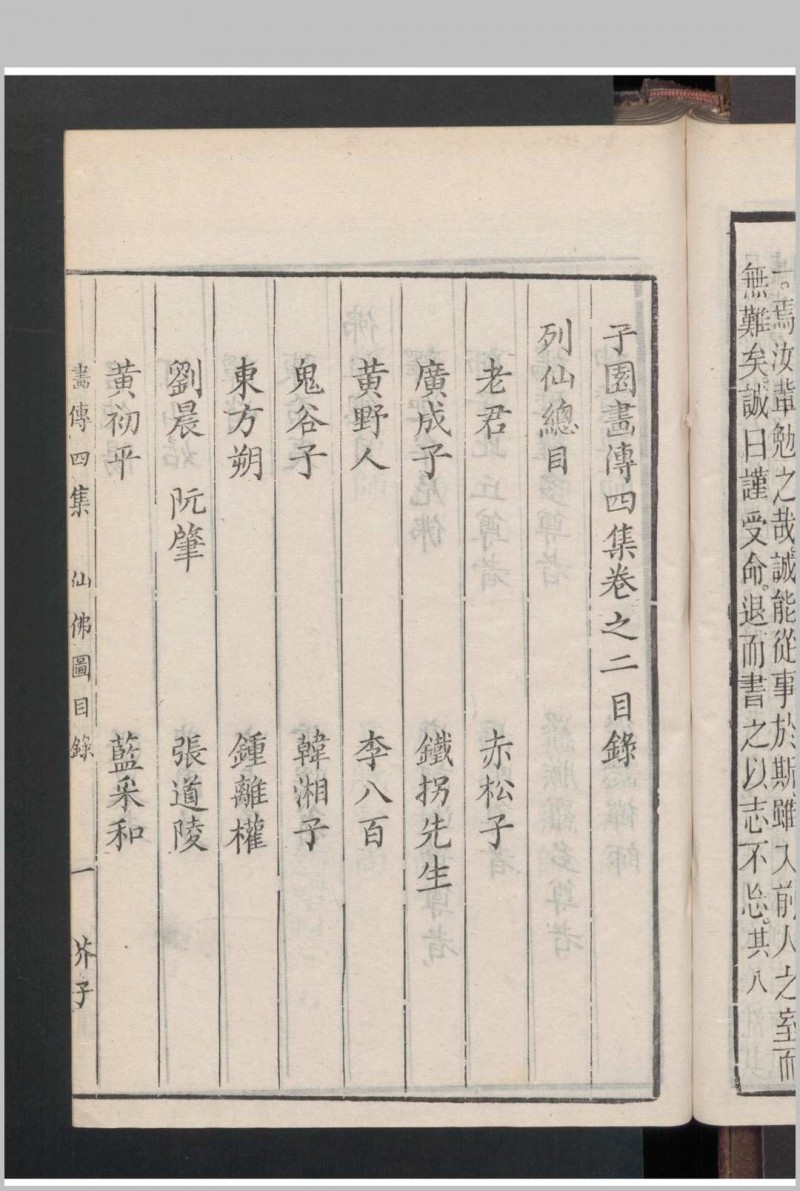 一。焉汝輩勉之哉。誠能從事於斯。雖入前人之室而
無難矣。誠日謹受命。退而書之以志不忘。其八
子園畫傳四集卷之二目錄
列仙總目
老君 赤松子
廣成子 鐵拐先生
黃野人 李八百
鬼谷子 韓湘子
東方朔 鍾離權
劉晨 阮肇 張道陵
黃初平 藍采和
畫傳四集 仙佛圖目錄 一 芥子